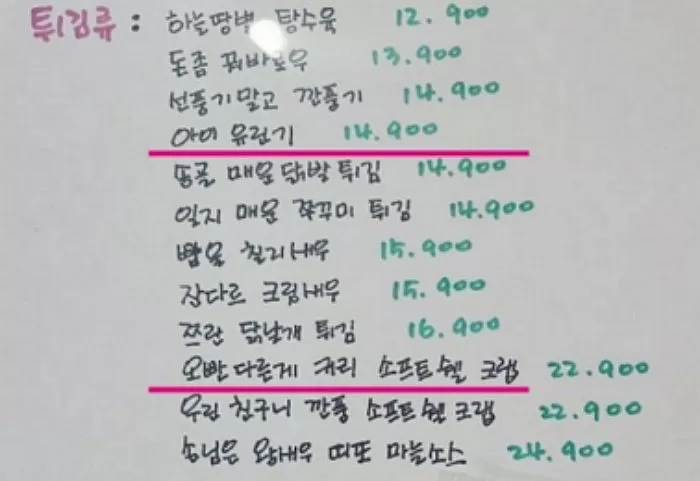 튀김류 : 하늘땅별 탕수육 12.900
돈좀 꿔바로우 13.900
선풍기말고 깐풍기 14.900
아이 유린기 14.900
송골 매운 닭발 튀김 14.900
일지 매운 쭈꾸미 튀김 14.900
칠리새우 15.900
잔다르 크림새우 15.900
쯔란 닭날개 튀김 16.900
오빤다른게 커리 소프트쉘 크랩 22.900
우린 친구니 깐풍 소프트쉘크랩 22.900
손님은 왕새우 띠또 마늘소스 24.900